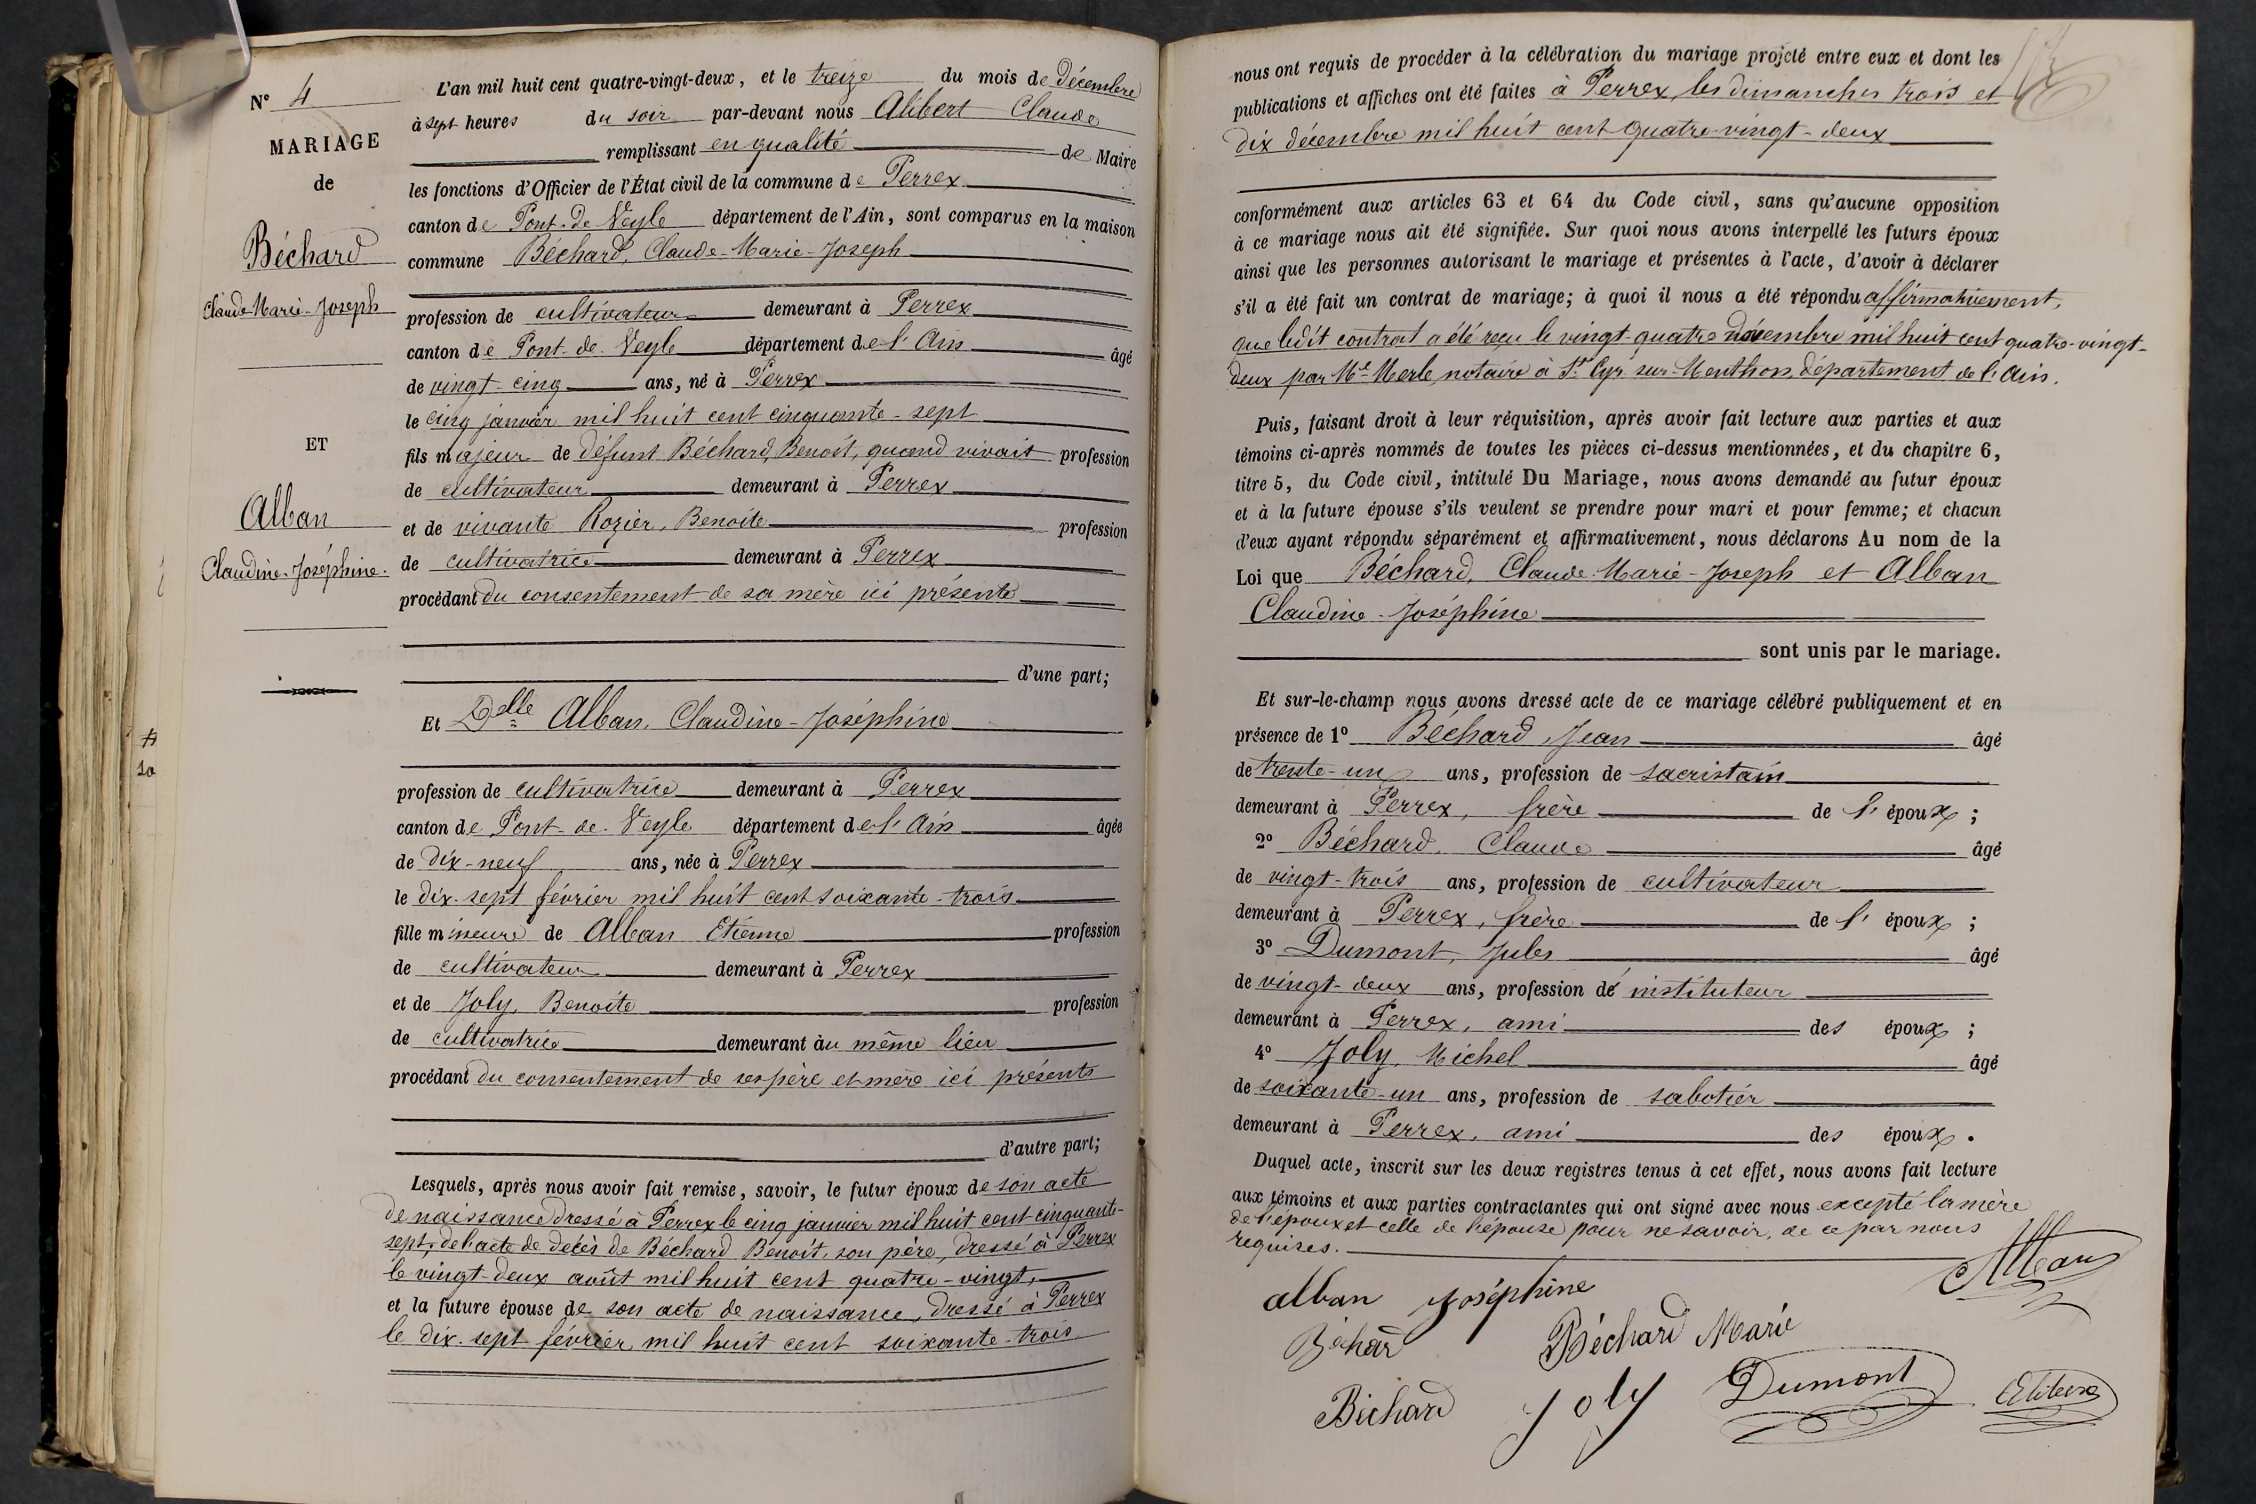 N° 4
MARIAGE
de
Béchard
Claude-Marie-Joseph
ET
Alban
Claudine-Joséphine.
L'an mil huit cent quatre-vingt-deux, et le treize du mois de Décembre
à sept heures du soir par-devant nous Alibert Claude
remplissant en qualité de Maire
les fonctions d'Officier de l'État civil de la commune de Perrex
canton de Pont-de-Veyle département de l'Ain, sont comparus en la maison
commune Béchard, Claude-Marie-Joseph
profession de cultivateur demeurant à Perrex
canton de Pont-de-Veyle département de l'Ain âgé
de vingt-cinq ans, né à Perrex
le cinq janvier mil huit cent cinquante-sept
fils majeur de défunt Béchard, Benoît, quand vivait profession
de cultivateur demeurant à Perrex
et de vivante Rozier, Benoite profession
de cultivatrice demeurant à Perrex
procédant du consentement de sa mère ici présente
d'une part;
Et Delle Alban, Claudine-Joséphine
profession de cultivatrice demeurant à Perrex
canton de Pont-de-Veyle département de l'Ain âgée
de dix-neuf ans, née à Perrex
le dix-sept février mil huit cent soixante-trois
fille mineure de Alban Etienne profession
de cultivateur demeurant à Perrex
et de Joly, Benoite profession
de cultivatrice demeurant au même lieu
procédant du consentement de ses père et mère ici présents
d'autre part;
Lesquels, après nous avoir fait remise, savoir, le futur époux de son acte
de naissance dressé à Perrex le cinq janvier mil huit cent cinquante-
sept, de l'acte de décès de Béchard Benoît, son père, dressé à Perrex
le vingt-deux août mil huit cent quatre-vingt,
et la future épouse de son acte de naissance, dressé à Perrex
le dix-sept février mil huit cent soixante-trois
nous ont requis de procéder à la célébration du mariage projeté entre eux et dont les
publications et affiches ont été faites à Perrex, les dimanches trois et
dix décembre mil huit cent quatre-vingt-deux
conformément aux articles 63 et 64 du Code civil, sans qu'aucune opposition
à ce mariage nous ait été signifiée. Sur quoi nous avons interpellé les futurs époux
ainsi que les personnes autorisant le mariage et présentes à l'acte, d'avoir à déclarer
s'il a été fait un contrat de mariage; à quoi il nous a été répondu affirmativement,
que ledit contrat a été reçu le vingt-quatre novembre mil huit cent quatre-vingt-
deux par Me Merle notaire à St Cyr-sur-Menthon, département de l'Ain.
Puis, faisant droit à leur réquisition, après avoir fait lecture aux parties et aux
témoins ci-après nommés de toutes les pièces ci-dessus mentionnées, et du chapitre 6,
titre 5, du Code civil, intitulé Du Mariage, nous avons demandé au futur époux
et à la future épouse s'ils veulent se prendre pour mari et pour femme; et chacun
d'eux ayant répondu séparément et affirmativement, nous déclarons Au nom de la
Loi que Béchard, Claude-Marie-Joseph et Alban
Claudine-Joséphine
sont unis par le mariage.
Et sur-le-champ nous avons dressé acte de ce mariage célébré publiquement et en
présence de 1° Béchard, Jean âgé
de trente-un ans, profession de sacristain
demeurant à Perrex, frère de l'époux;
2° Béchard, Claude âgé
de vingt-trois ans, profession de cultivateur
demeurant à Perrex, frère de l'époux;
3° Dumont, Jules âgé
de vingt-deux ans, profession de instituteur
demeurant à Perrex, ami des époux;
4° Joly, Michel âgé
de soixante-un ans, profession de sabotier
demeurant à Perrex, ami des époux.
Duquel acte, inscrit sur les deux registres tenus à cet effet, nous avons fait lecture
aux témoins et aux parties contractantes qui ont signé avec nous excepté la mère
de l'époux et celle de l'épouse pour ne savoir, de ce par nous
requises.
Alban
alban joséphine
Béchard
Béchard Marie
Béchard
Joly
Dumont